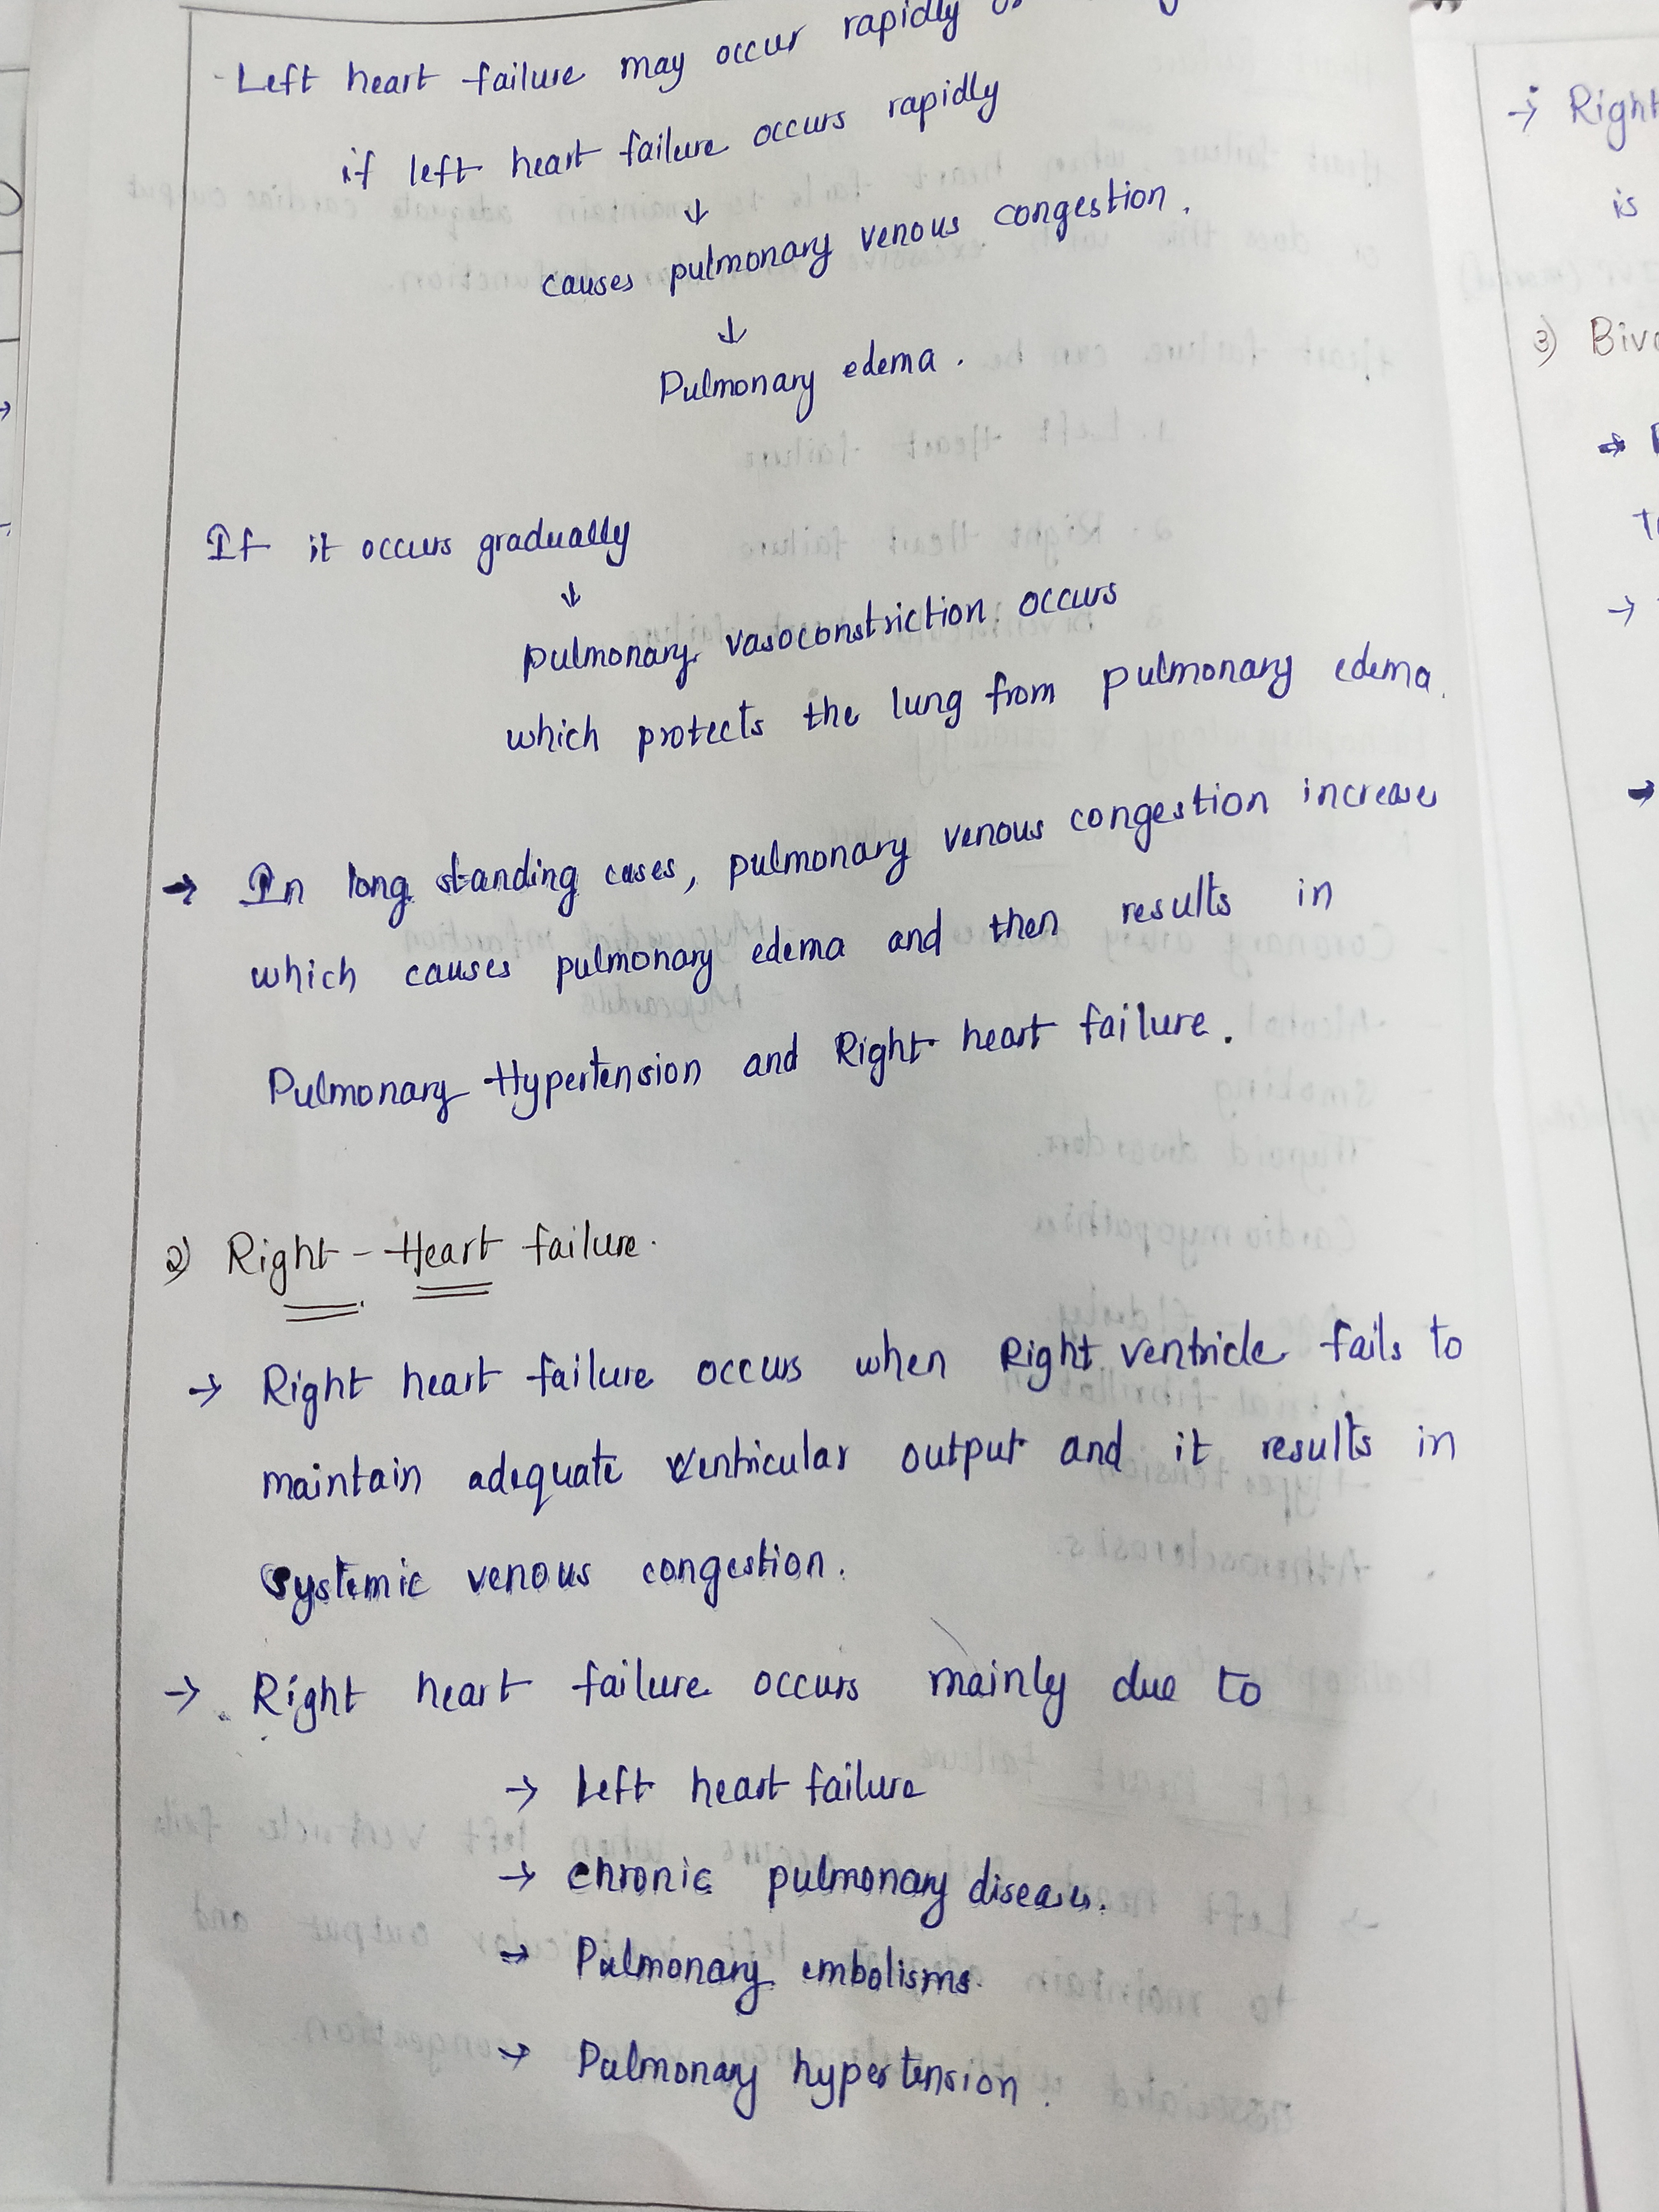 - Left heart failure may occur rapidly
if left heart failure occurs rapidly
↓
causes pulmonary venous congestion.
↓
Pulmonary edema.
If it occurs gradually
↓
pulmonary vasoconstriction occurs
which protects the lung from pulmonary edema.
→ In long standing cases, pulmonary venous congestion increases
which causes pulmonary edema and then results in
Pulmonary Hypertension and Right heart failure.
2) Right - Heart failure.
→ Right heart failure occurs when Right ventricle fails to
maintain adequate ventricular output and it results in
systemic venous congestion.
→ Right heart failure occurs mainly due to
→ Left heart failure
→ chronic pulmonary diseases.
→ Pulmonary embolisms.
→ Pulmonary hypertension.
→ Right
is
3)